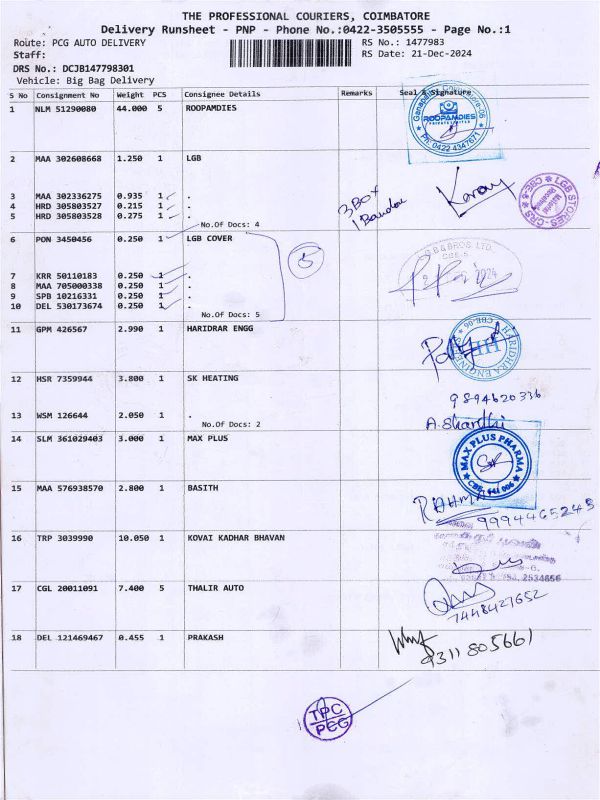 THE PROFESSIONAL COURIERS, COIMBATORE
Delivery Runsheet - PNP - Phone No.:0422-3505555 - Page No.:1
Route: PCG AUTO DELIVERY RS No.: 1477983
Staff: RS Date: 21-Dec-2024
DRS No.: DCJB147798301
Vehicle: Big Bag Delivery
S No Consignment No Weight PCS Consignee Details Remarks Seal & Signature
1 NLM 51290080 44.000 5 ROOPAMDIES
ROOPAMDIES
PRIVATE LIMITED
Ph: 0422 4347671
2 MAA 302608668 1.250 1 LGB
3 MAA 302336275 0.935 1 .
4 HRD 305803527 0.215 1 .
5 HRD 305803528 0.275 1 .
3 BOX
LGB STORES-CRS
CBE-6
No.Of Docs: 4
6 PON 3450456 0.250 1 LGB COVER
5
7 KRR 50110183 0.250 1 .
8 MAA 705000338 0.250 1 .
9 SPB 10216331 0.250 1 .
10 DEL 530173674 0.250 1 .
No.Of Docs: 5
11 GPM 426567 2.990 1 HARIDRAR ENGG
12 HSR 7359944 3.800 1 SK HEATING
9894620336
13 WSM 126644 2.050 1 .
No.Of Docs: 2
A. Shanthi
14 SLM 361029403 3.000 1 MAX PLUS
MAX PLUS PHARMA
CBE-641 006
15 MAA 576938570 2.800 1 BASITH
9994465245
16 TRP 3039990 10.050 1 KOVAI KADHAR BHAVAN
2534656
17 CGL 20011091 7.400 5 THALIR AUTO
7448427652
18 DEL 121469467 0.455 1 PRAKASH
9311805661
TPC
PCG